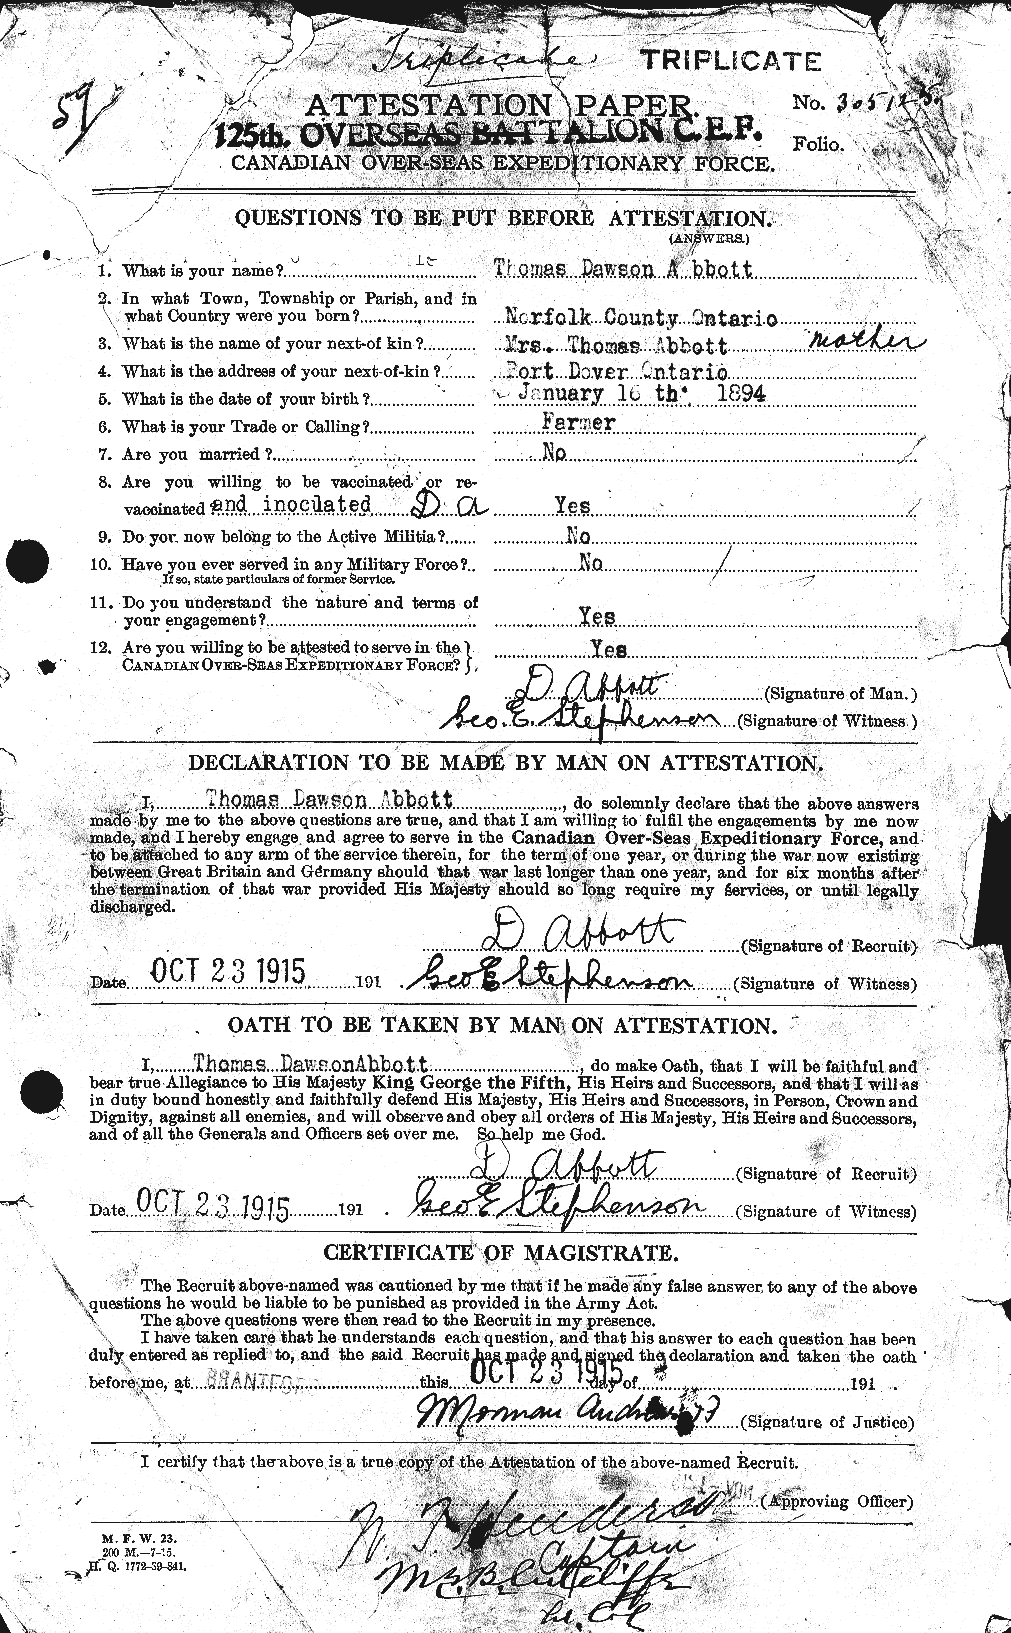 Triplicate TRIPLICATE
59
ATTESTATION PAPER. No. 305123
125th. OVERSEAS BATTALION C.E.F. Folio.
CANADIAN OVER-SEAS EXPEDITIONARY FORCE.
QUESTIONS TO BE PUT BEFORE ATTESTATION.
(ANSWERS.)
1. What is your name? Thomas Dawson Abbott
2. In what Town, Township or Parish, and in
what Country were you born? Norfolk County Ontario
3. What is the name of your next-of kin? Mrs. Thomas Abbott mother
4. What is the address of your next-of-kin? Port Dover Ontario
5. What is the date of your birth? January 16 th. 1894
6. What is your Trade or Calling? Farmer
7. Are you married? No
8. Are you willing to be vaccinated or re-
vaccinated and inoculated D A Yes
9. Do you now belong to the Active Militia? No
10. Have you ever served in any Military Force? No
If so, state particulars of former Service.
11. Do you understand the nature and terms of
your engagement? Yes
12. Are you willing to be attested to serve in the
CANADIAN OVER-SEAS EXPEDITIONARY FORCE? Yes
D Abbott (Signature of Man.)
Geo. E. Stephenson (Signature of Witness.)
DECLARATION TO BE MADE BY MAN ON ATTESTATION.
I, Thomas Dawson Abbott, do solemnly declare that the above answers
made by me to the above questions are true, and that I am willing to fulfil the engagements by me now
made, and I hereby engage and agree to serve in the Canadian Over-Seas Expeditionary Force, and
to be attached to any arm of the service therein, for the term of one year, or during the war now existing
between Great Britain and Germany should that war last longer than one year, and for six months after
the termination of that war provided His Majesty should so long require my services, or until legally
discharged.
D Abbott (Signature of Recruit)
Date OCT 23 1915 191 . Geo E Stephenson (Signature of Witness)
OATH TO BE TAKEN BY MAN ON ATTESTATION.
I, Thomas DawsonAbbott, do make Oath, that I will be faithful and
bear true Allegiance to His Majesty King George the Fifth, His Heirs and Successors, and that I will as
in duty bound honestly and faithfully defend His Majesty, His Heirs and Successors, in Person, Crown and
Dignity, against all enemies, and will observe and obey all orders of His Majesty, His Heirs and Successors,
and of all the Generals and Officers set over me. So help me God.
D Abbott (Signature of Recruit)
Date OCT 23 1915 191 . Geo E Stephenson (Signature of Witness)
CERTIFICATE OF MAGISTRATE.
The Recruit above-named was cautioned by me that if he made any false answer to any of the above
questions he would be liable to be punished as provided in the Army Act.
The above questions were then read to the Recruit in my presence.
I have taken care that he understands each question, and that his answer to each question has been
duly entered as replied to, and the said Recruit has made and signed the declaration and taken the oath
before me, at this OCT 23 1915 day of 191 .
(Signature of Justice)
I certify that the above is a true copy of the Attestation of the above-named Recruit.
(Approving Officer)
M. F. W. 23.
200 M.—7-15.
H. Q. 1772-39-841.
Captain
M.E.B. Cutcliffe
Lt. Col